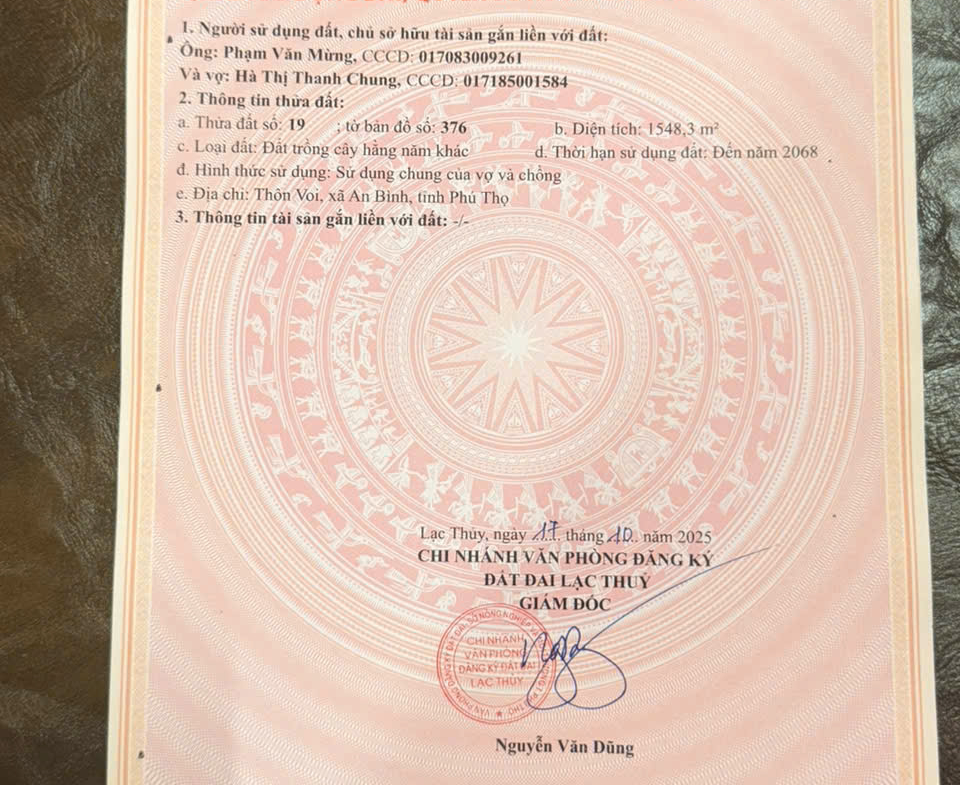 1. Người sử dụng đất, chủ sở hữu tài sản gắn liền với đất:
Ông: Phạm Văn Mừng, CCCD: 017083009261
Và vợ: Hà Thị Thanh Chung, CCCD: 017185001584
2. Thông tin thửa đất:
a. Thửa đất số: 19 ; tờ bản đồ số: 376 b. Diện tích: 1548,3 m²
c. Loại đất: Đất trồng cây hằng năm khác d. Thời hạn sử dụng đất: Đến năm 2068
đ. Hình thức sử dụng: Sử dụng chung của vợ và chồng
e. Địa chỉ: Thôn Voi, xã An Bình, tỉnh Phú Thọ
3. Thông tin tài sản gắn liền với đất: -/-
Lạc Thủy, ngày 17 tháng 10 năm 2025
CHI NHÁNH VĂN PHÒNG ĐĂNG KÝ
ĐẤT ĐAI LẠC THUỶ
GIÁM ĐỐC
CHI NHÁNH
VĂN PHÒNG
ĐĂNG KÝ ĐẤT ĐAI
LẠC THỦY
Nguyễn Văn Dũng